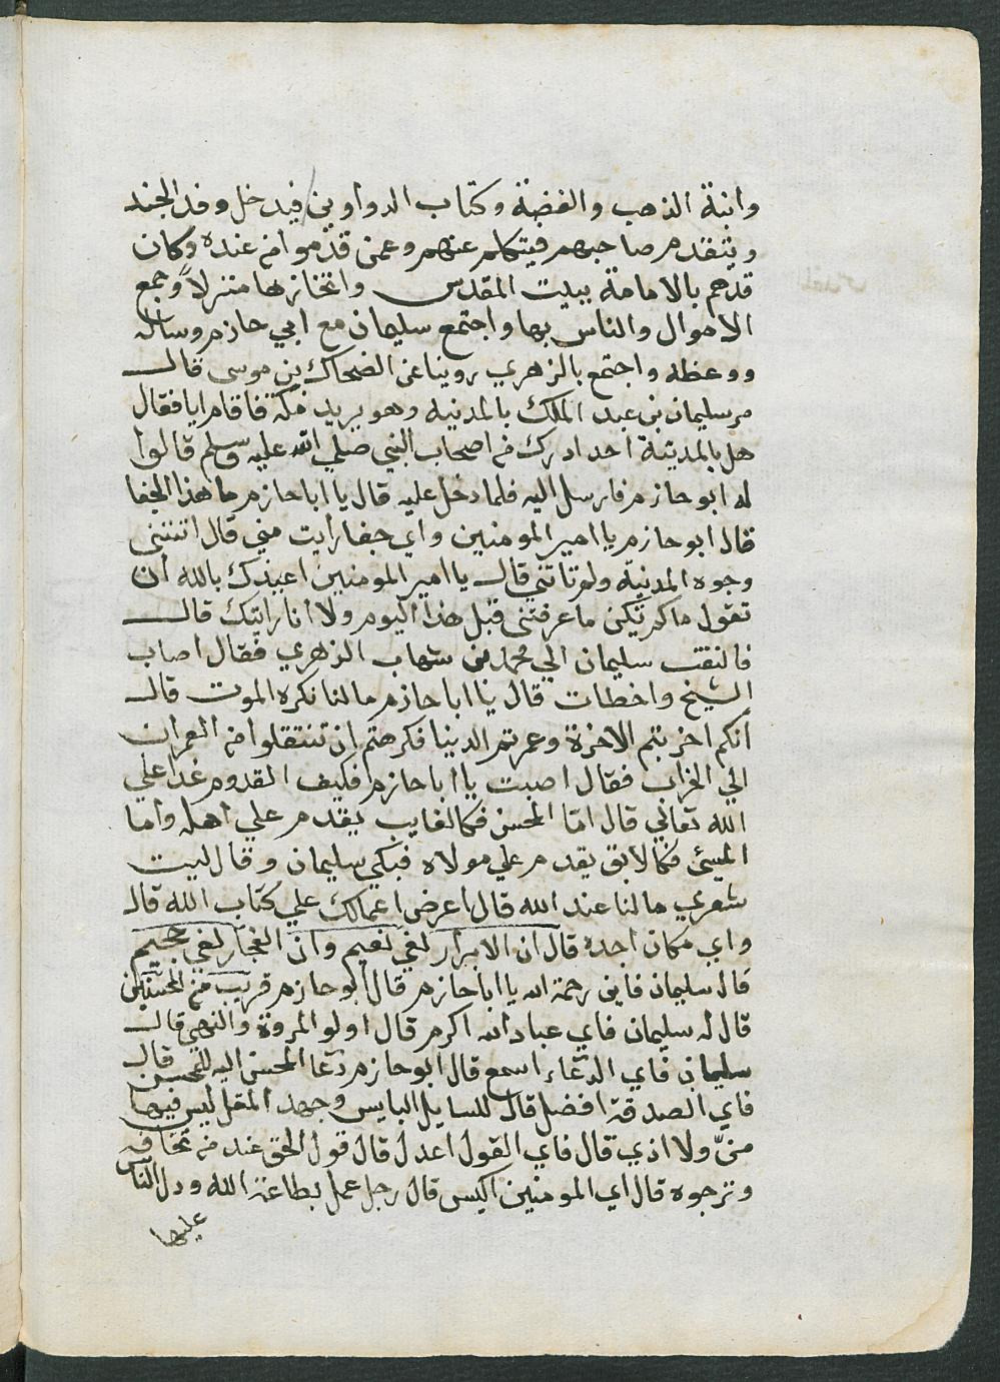 وانية الذهب والفضة وكتاب الدواوين فيدخل وفد الجند
ويتقدم صاحبهم فيتكلم عنهم وعمن قدموا من عنده وكان
قدهم بالامامة ببيت المقدس واتخازها منزلاً وجمع
الاموال والناس بها واجتمع سليمان مع ابي حازم وساله
ووعظه واجتمع بالزهري روينا عن الضحاك بن موسى قال
مر سليمان بن عبد الملك بالمدنيه وهو يريد مكة فاقام ايا فقال
هل بالمدينة احد ادرك من اصحاب النبي صلي الله عليه وسلم قالوا
له ابو حازم فارسل اليه فلما دخل عليه قال يا ابا حازم ما هذا الجفا
قال ابو حازم يا امير المومنين واي جفا رايت مني قال اتتني
وجوه المدنية ولم تاتني قال يا امير المومنين اعيذك بالله ان
تقول ما لم تكن ما عرفتني قبل هذا اليوم ولا انا رايتك قال
فالتفت سليمان الي محمد بن شهاب الزهري فقال اصاب
الشيخ واخطات قال يا ابا حازم ما لنا نكره الموت قال
انكم اخربتم الاخرة وعمرتم الدينا فكرهتم ان تنتقلوا من العمران
الي الخراب فقال اصبت يا ابا حازم فكيف القدوم غدا علي
الله تعالي قال امّا المحسن فكالغايب يقدم علي اهله واما
المسئ فكالابق يقدم علي مولاه فبكي سليمان وقال ليت
شعري ما لنا عند الله قال اعرض اعمالك علي كتاب الله قال
واي مكان اجده قال ان الابرار لفي نعيم وان الفجار لفي جحيم
قال سليمان فاين رحمة الله يا ابا حازم قال ابو حازم قريب من المحسنين
قال له سليمان فاي عباد الله اكرم قال اولو المروة والنهي قال
سليمان فاي الدعاء اسمع قال ابو حازم دعا المحسن اليه للمحسن قال
فاي الصدقة افضل قال للسايل البايس وجهد المقل ليس فيها
منّ ولا اذي قال فاي القول اعدل قال قول الحق عند من تخافه
وترجوه قال اي المومنين اكيس قال رجل عمل بطاعة الله ودل الناس
عليها